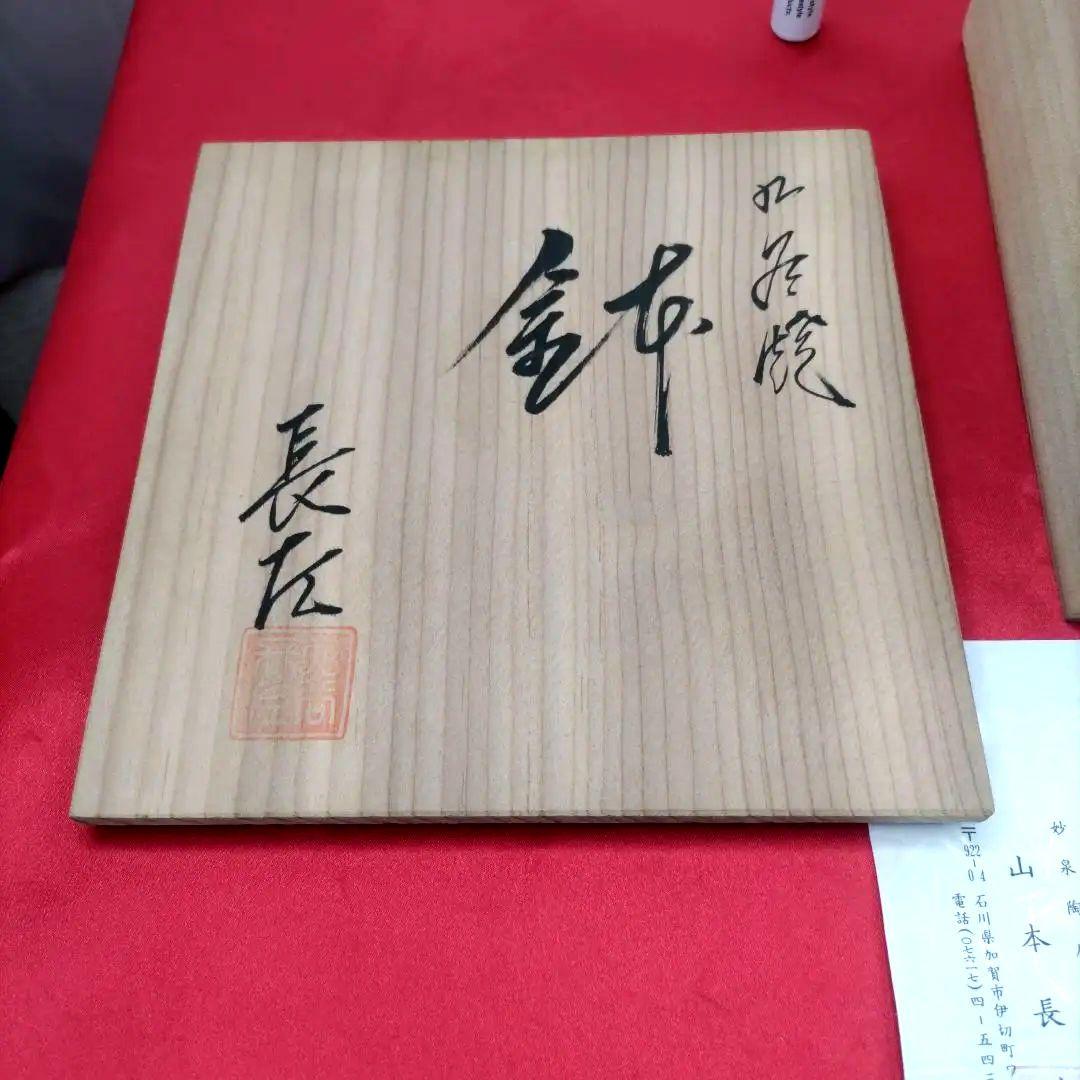 九谷焼
鉢
長左
妙泉陶
山本長
〒922-04 石川県加賀市伊切町
電話(〇七六一七)四-五四二